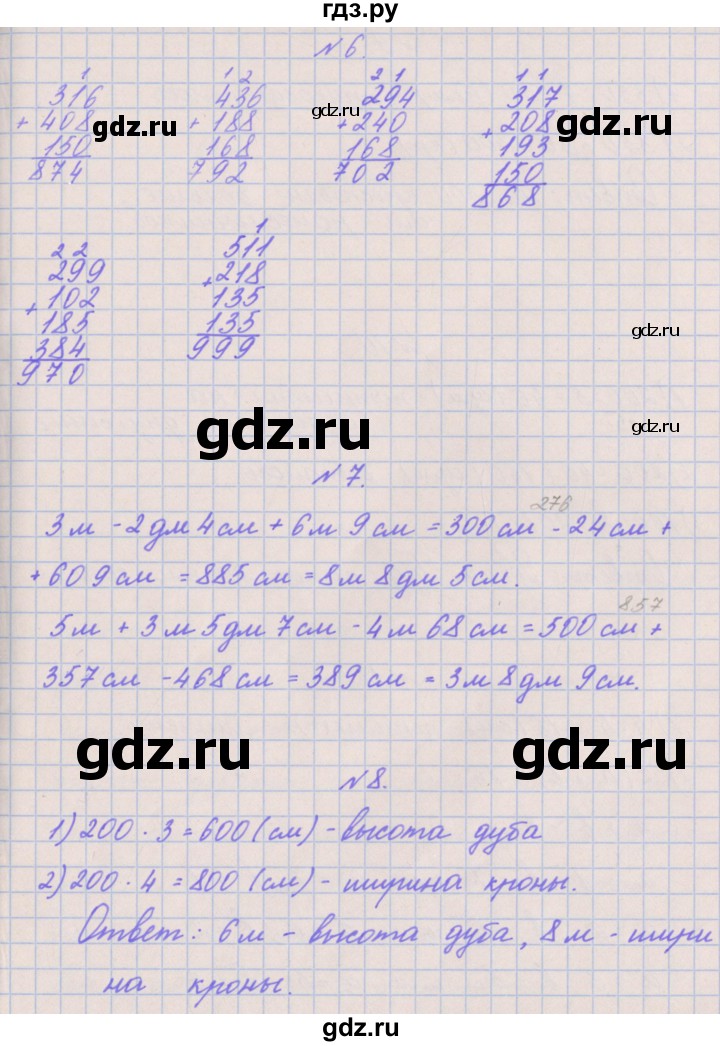 гдз.ру
N 6.
1
316
+ 408
150
874
1 2
436
+ 188
168
792
2 1
294
+ 240
168
702
1 1
317
+ 208
193
150
868
gdz.ru
gdz.ru
gdz.ru
2 2
299
+ 102
185
384
970
1
511
+ 218
135
135
999
gdz.ru
gdz.ru
gdz.ru
N 7.
276
3м - 2дм 4см + 6м 9см = 300см - 24см +
+ 609см = 885см = 8м 8дм 5см.
857
5м + 3м 5дм 7см - 4м 68см = 500см +
357см - 468см = 389см = 3м 8дм 9см.
gdz.ru
gdz.ru
N 8.
1) 200 · 3 = 600 (см) - высота дуба
2) 200 · 4 = 800 (см) - ширина кроны.
Ответ: 6м - высота дуба, 8м - шири
на кроны.
gdz.ru